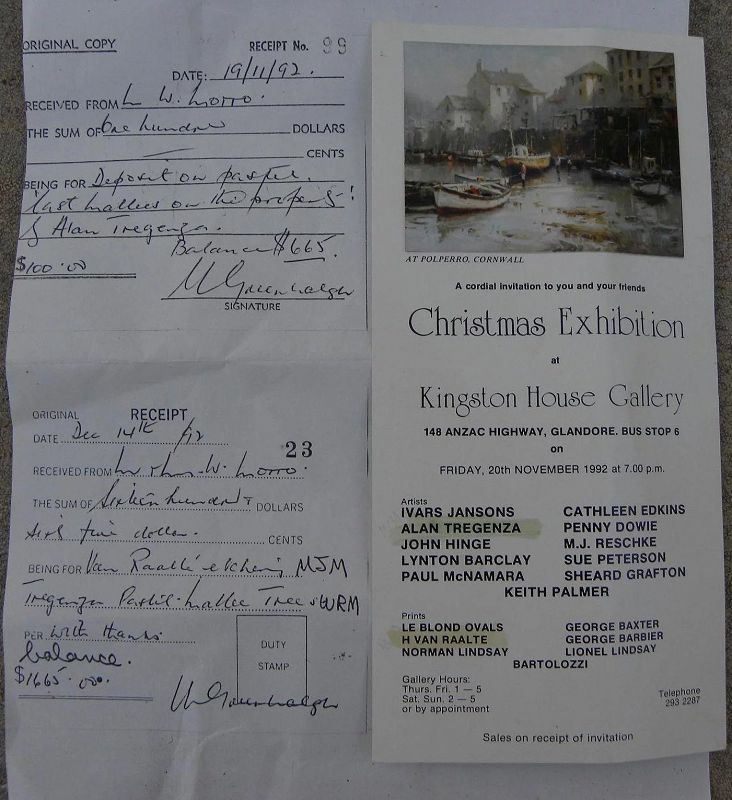 ORIGINAL COPY
RECEIPT No. 99
DATE: 19/11/92.
RECEIVED FROM W. Morro.
THE SUM OF One hundred DOLLARS
CENTS
BEING FOR Deposit on pastel.
'Last mallees on the property'
by Alan Tregenza.
Balance $665.
$100.00
SIGNATURE
ORIGINAL RECEIPT
DATE Dec 14th /92
23
RECEIVED FROM W. Morro.
THE SUM OF Sixteen hundred + DOLLARS
sixty five dollars. CENTS
BEING FOR Van Raalte etching MJM
Tregenza Pastel. Mallee Trees WRM
PER with thanks
balance.
$1665.00.
DUTY
STAMP
AT POLPERRO, CORNWALL
A cordial invitation to you and your friends
Christmas Exhibition
at
Kingston House Gallery
148 ANZAC HIGHWAY, GLANDORE. BUS STOP 6
on
FRIDAY, 20th NOVEMBER 1992 at 7.00 p.m.
Artists
IVARS JANSONS CATHLEEN EDKINS
ALAN TREGENZA PENNY DOWIE
JOHN HINGE M.J. RESCHKE
LYNTON BARCLAY SUE PETERSON
PAUL McNAMARA SHEARD GRAFTON
KEITH PALMER
Prints
LE BLOND OVALS GEORGE BAXTER
H VAN RAALTE GEORGE BARBIER
NORMAN LINDSAY LIONEL LINDSAY
BARTOLOZZI
Gallery Hours:
Thurs. Fri. 1 — 5
Sat. Sun. 2 — 5
or by appointment
Telephone
293 2287
Sales on receipt of invitation